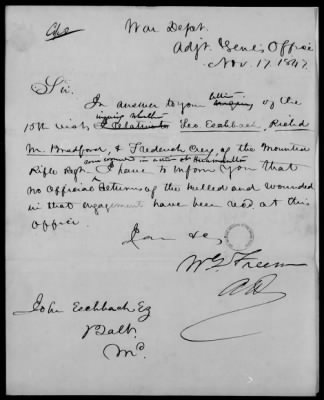 War Dept.
Adjt. Genl's Office
Nov. 17. 1847.
Sir.
In answer to your letter of the
15th inst. inquiring whether Geo Eschbach, Richd
M. Bradford, & Frederick of the Mounted
Rifle Regt. I have to inform you that
no Official Returns of the killed and wounded
in that engagement have been recd. at this
Office.
I am &c,
W. G. Freeman
John Eschbach Esq
Balt.
Md.